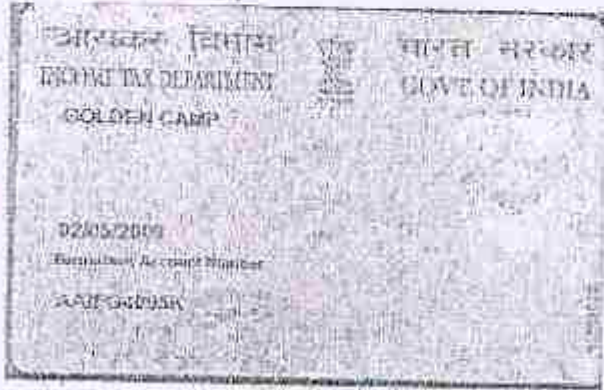 आयकर विभाग
भारत सरकार
INCOME TAX DEPARTMENT
GOVT. OF INDIA
GOLDEN CAMP
02/05/2009
Permanent Account Number